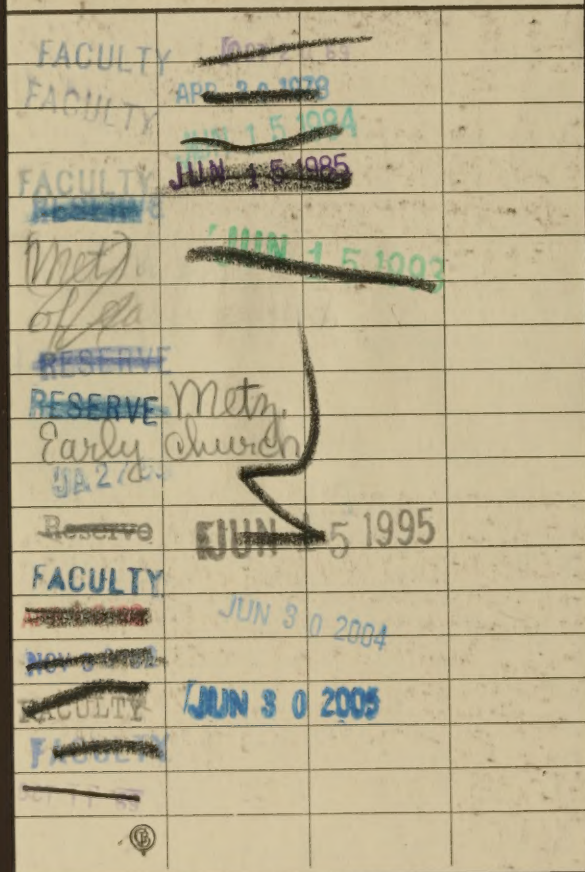 FACULTY
FACULTY APR 20 1978
JUN 15 1984
FACULTY JUN 15 1985
RESERVE
(Metz) JUN 15 1993
of
RESERVE
RESERVE Metz.
Early Church
Reserve JUN 15 1995
FACULTY
JUN 30 2004
NOV
FACULTY JUN 30 2005
FACULTY